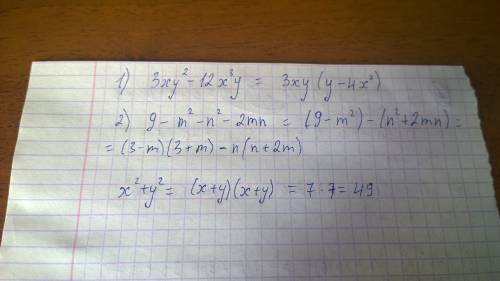 1) 3xy² - 12x³y = 3xy (y - 4x²)
2) 9 - m² - n² - 2mn = (9 - m²) - (n² + 2mn) =
= (3 - m)(3 + m) - n(n + 2m)
x² + y² = (x + y)(x + y) = 7 · 7 = 49